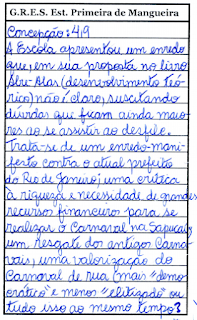 G.R.E.S. Est. Primeira de Mangueira
Concepção: 4,9
A Escola apresentou um enredo
que, em sua proposta no livro
Abre-Alas (desenvolvimento Teó-
rico) não é claro, suscitando
dúvidas que ficam ainda maio-
res ao se assistir ao desfile.
Trata-se de um enredo-mani-
festo contra o atual prefeito
do Rio de Janeiro; uma crítica
à riqueza e necessidade de grandes
recursos financeiros para se
realizar o Carnaval na Sapucaí;
um Resgate dos antigos Carna-
vais, uma valorização do
Carnaval de rua (mais "demo
crático" e menos "elitizado" ou
tudo isso ao mesmo tempo?